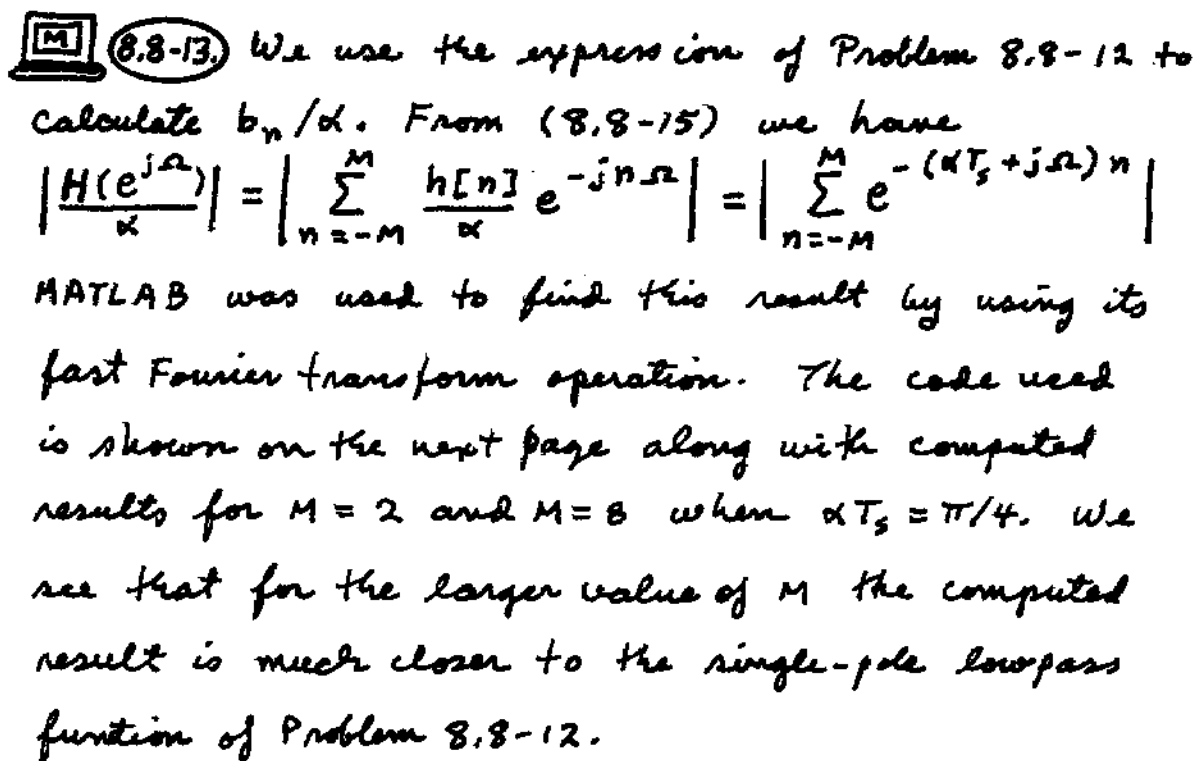 M 8.8-13. We use the expression of Problem 8.8-12 to
calculate bₙ/α. From (8.8-15) we have
|H(e^{jΩ})/α| = |∑_{n=-M}^{M} h[n]/α e^{-jnΩ}| = |∑_{n=-M}^{M} e^{-(αT_s+jΩ)n}|
MATLAB was used to find this result by using its
fast Fourier transform operation. The code used
is shown on the next page along with computed
results for M = 2 and M = 8 when αT_s = π/4. We
see that for the larger value of M the computed
result is much closer to the single-pole lowpass
funtion of Problem 8.8-12.